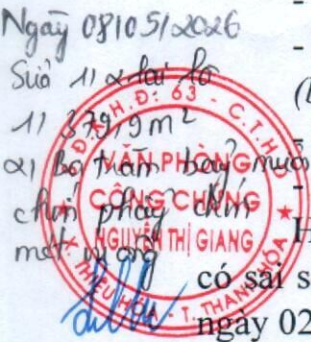 Ngày 08/05/2026
Sửa 1/ 2 lại là
1/ 379,9 m²
2/ Ba trăm bảy mươi
chín phẩy chín
mét vuông
Đ.K.H.Đ: 63 - C.T.H
VĂN PHÒNG
CÔNG CHỨNG
NGUYỄN THỊ GIANG
X. THIỆU HÓA - T. THANH HÓA
H
có sai s
ngày 02